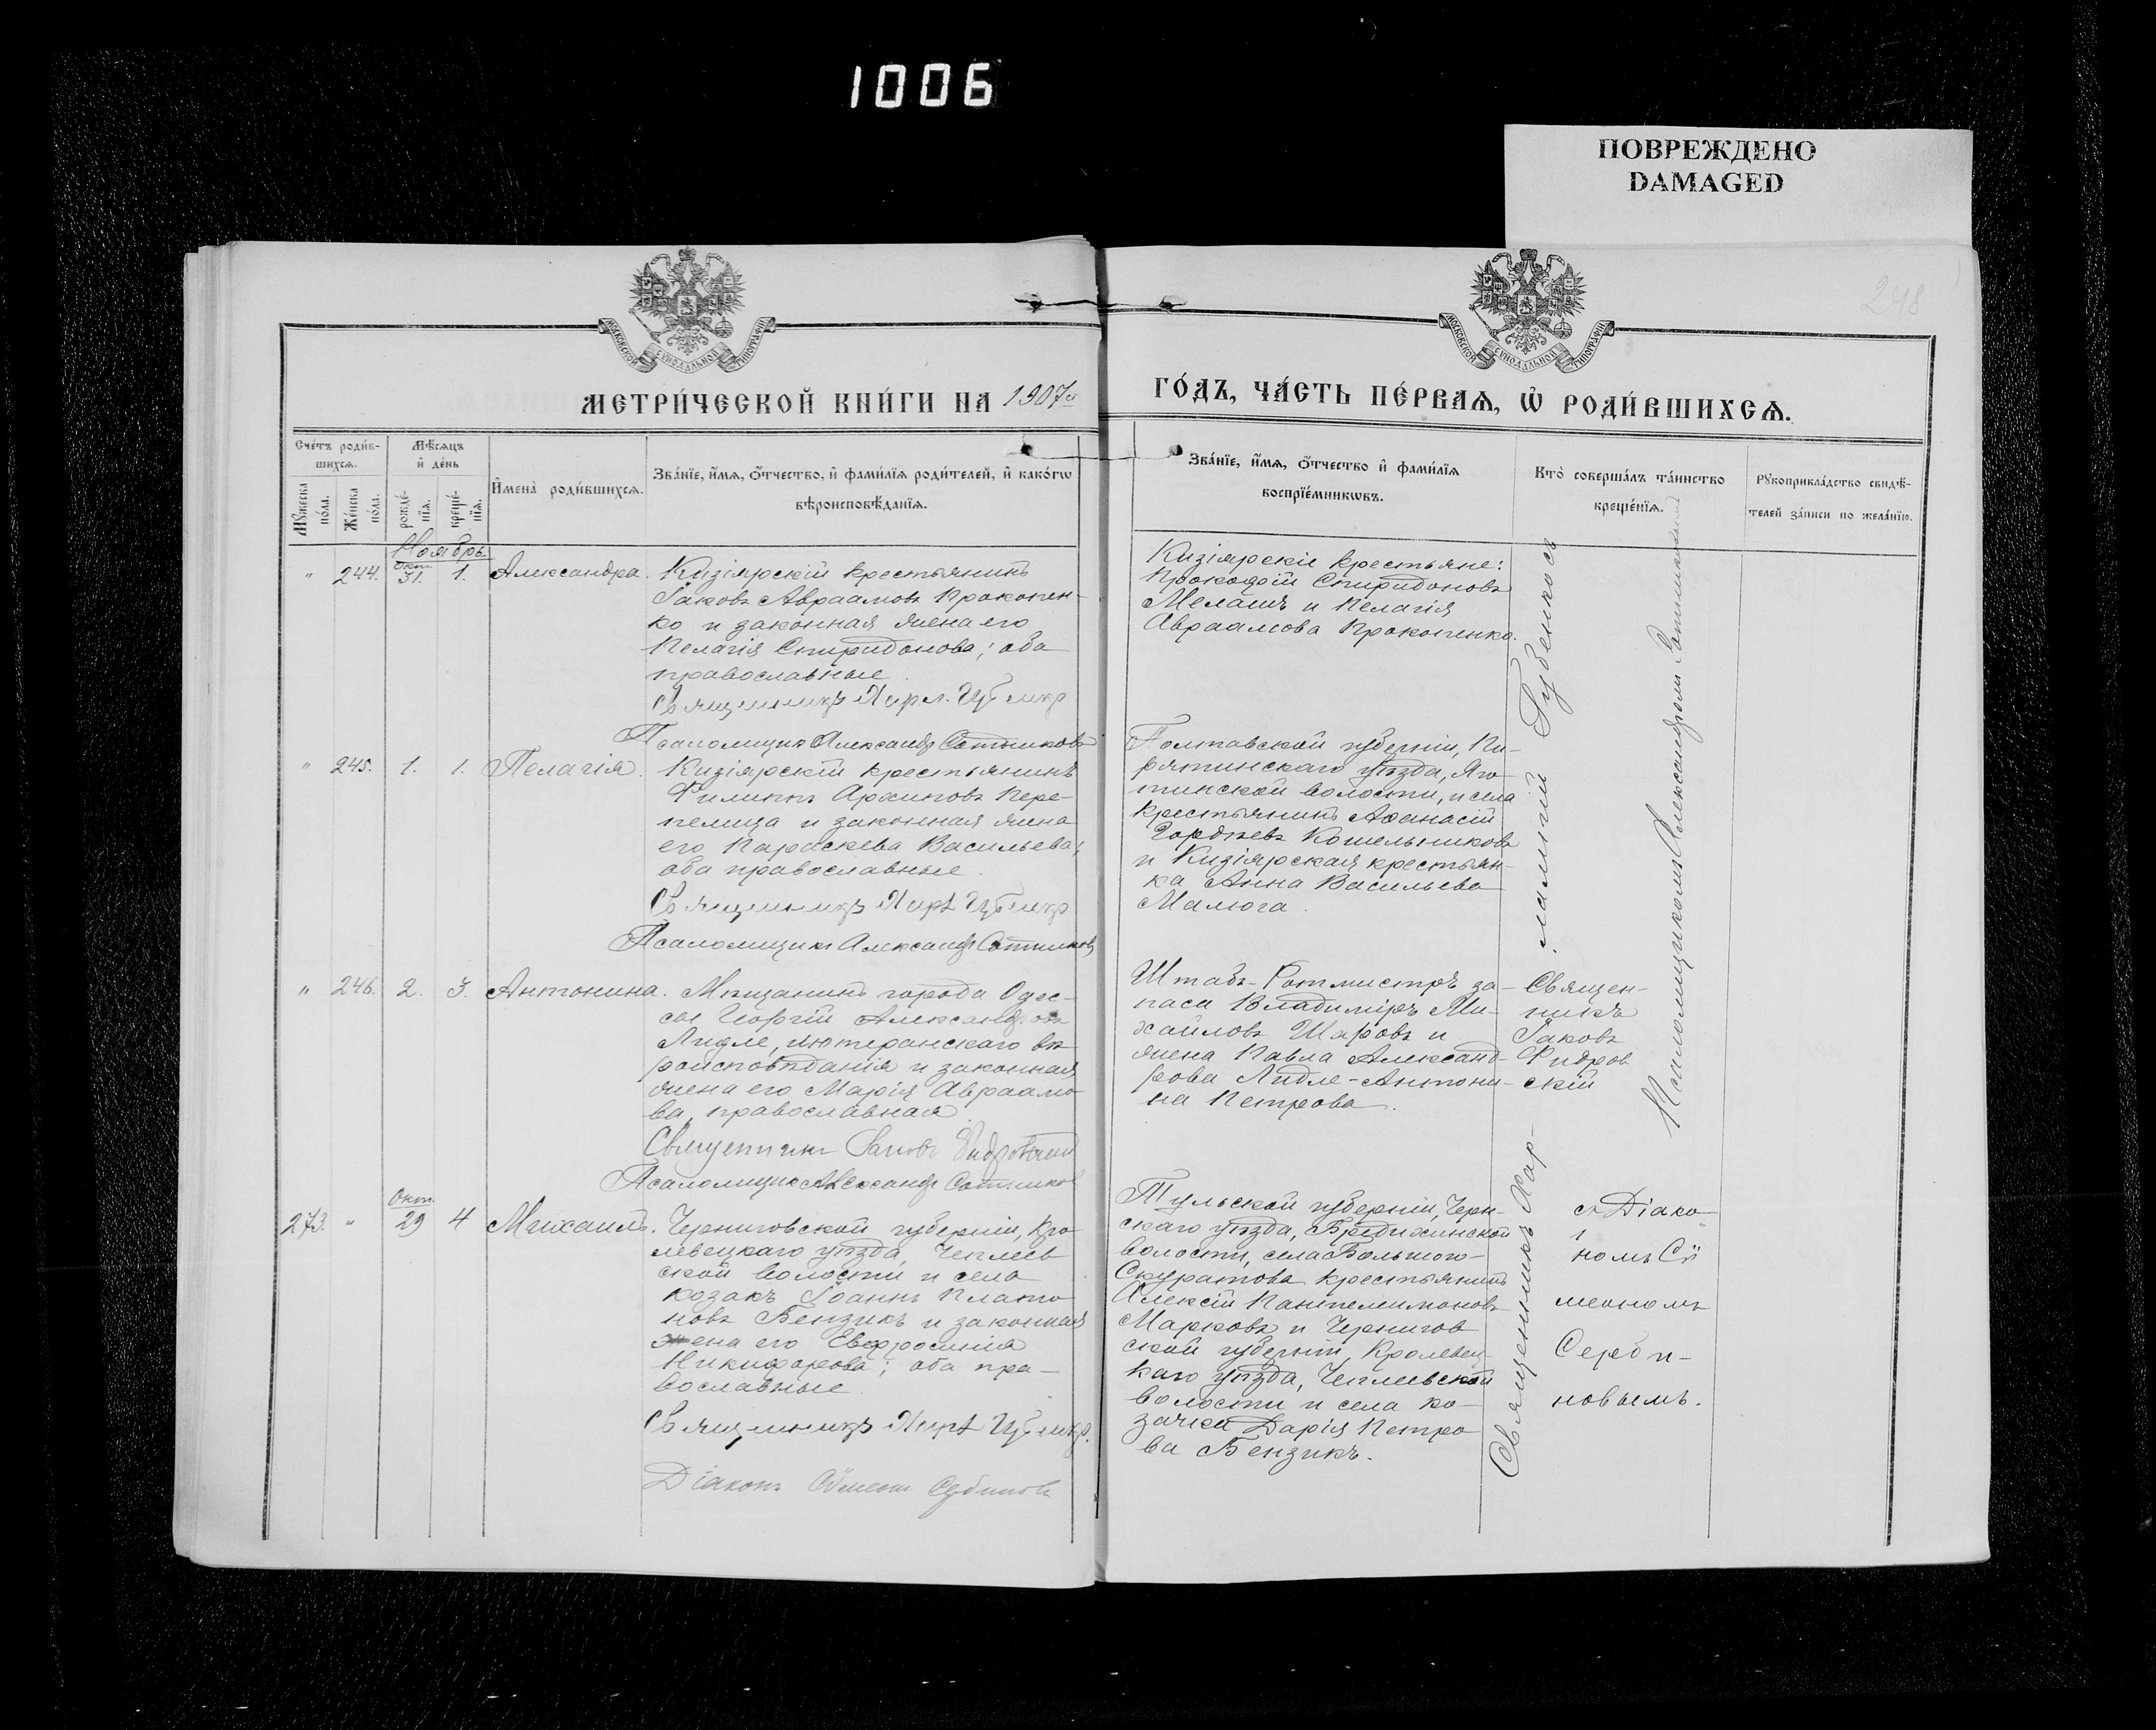 1006
ПОВРЕЖДЕНО
DAMAGED
248
МОСКОВСКОЙ СУНОДАЛЬНОЙ ТИПОГРАФІИ
МОСКОВСКОЙ СУНОДАЛЬНОЙ ТИПОГРАФІИ
МЕТРИ́ЧЕСКОЙ КНИ́ГИ НА 1907й
ГО́ДЪ, ЧА́СТЬ ПЕ́РВАѦ, Ѡ РОДИ́ВШИХСѦ.
Сче́тъ роди́в-
шихсѧ.
Мѹжеска по́ла.
Же́нска по́ла.
Мѣ́сѧцъ
и де́нь
рожде́нїѧ.
креще́нїѧ.
Имена̀ роди́вшихсѧ.
Зва́нїе, и́мѧ, ѻ́тчество, и фами́лїѧ роди́телей, и како́гѡ
вѣроисповѣ́данїѧ.
Зва́нїе, и́мѧ, ѻ́тчество и фами́лїѧ
воспрїе́мникѡвъ.
Кто̀ соверша́лъ та́инство
креще́нїѧ.
Рѹкоприкла́дство свидѣ́-
телей за́писи по жела́нїю.
Ноябрь
" 244. Окт. 31. 1. Александра.
Кизіярскій крестьянинъ
Іаковъ Авраамовъ Прокопен-
ко и законная жена его
Пелагія Спиридонова; оба
православные.
Священникъ
Псаломщикъ Александр Сотниковъ
Кизіярскіе крестьяне:
Прокофій Спиридоновъ
Мелашъ и Пелагія
Авраамова Прокопенко.
" 245. 1. 1. Пелагія.
Кизіярскій крестьянинъ
Филиппъ Архиповъ Пере-
пелица и законная жена
его Параскева Васильева;
оба православные.
Священникъ
Псаломщикъ Александр Сотников
Полтавской губерніи, Пи-
рятинскаго уѣзда, Яго-
тинской волости, и села
крестьянинъ Аѳанасій
Гордѣевъ Кошельниковъ
и Кизіярская крестьян-
ка Анна Васильева
Малюга.
" 246. 2. 3. Антонина.
Мѣщанинъ города Одес-
сы Георгій Александровъ
Лидле, лютеранскаго вѣ-
роисповѣданія и законная
жена его Марія Авраамо-
ва, православная.
Священникъ Іаковъ
Псаломщикъ Александр Сотников
Штабъ-Ротмистръ за-
паса Владиміръ Ми-
хайловъ Шаровъ и
жена Павла Александ-
рова Лидле-Антони-
на Петрова.
Священ-
никъ
Іаковъ
Фидров
скій
273. " Окт. 29 4 Михаилъ.
Черниговской губерніи, Кро-
левецкаго уѣзда, Чеплеев
ской волости и села
козакъ Іоаннъ Плато-
новъ Бензикъ и законная
жена его Евфросинія
Никифорова; оба пра-
вославные.
Священникъ
Діаконъ
Тульской губерніи, Черн-
скаго уѣзда,
волости, села Большого-
Скуратова крестьянинъ
Алексій Пантелеимоновъ
Марковъ и Чернигов
ской губерніи, Кролевец-
каго уѣзда, Чеплеевской
волости и села ко-
зачка Дарія Петро
ва Бензикъ.
Священникъ Хар-
лампій Губенковъ
Псаломщикомъ Александромъ Сотниковымъ
съ Діако-
номъ Сѵ
меономъ
Серби-
новымъ.